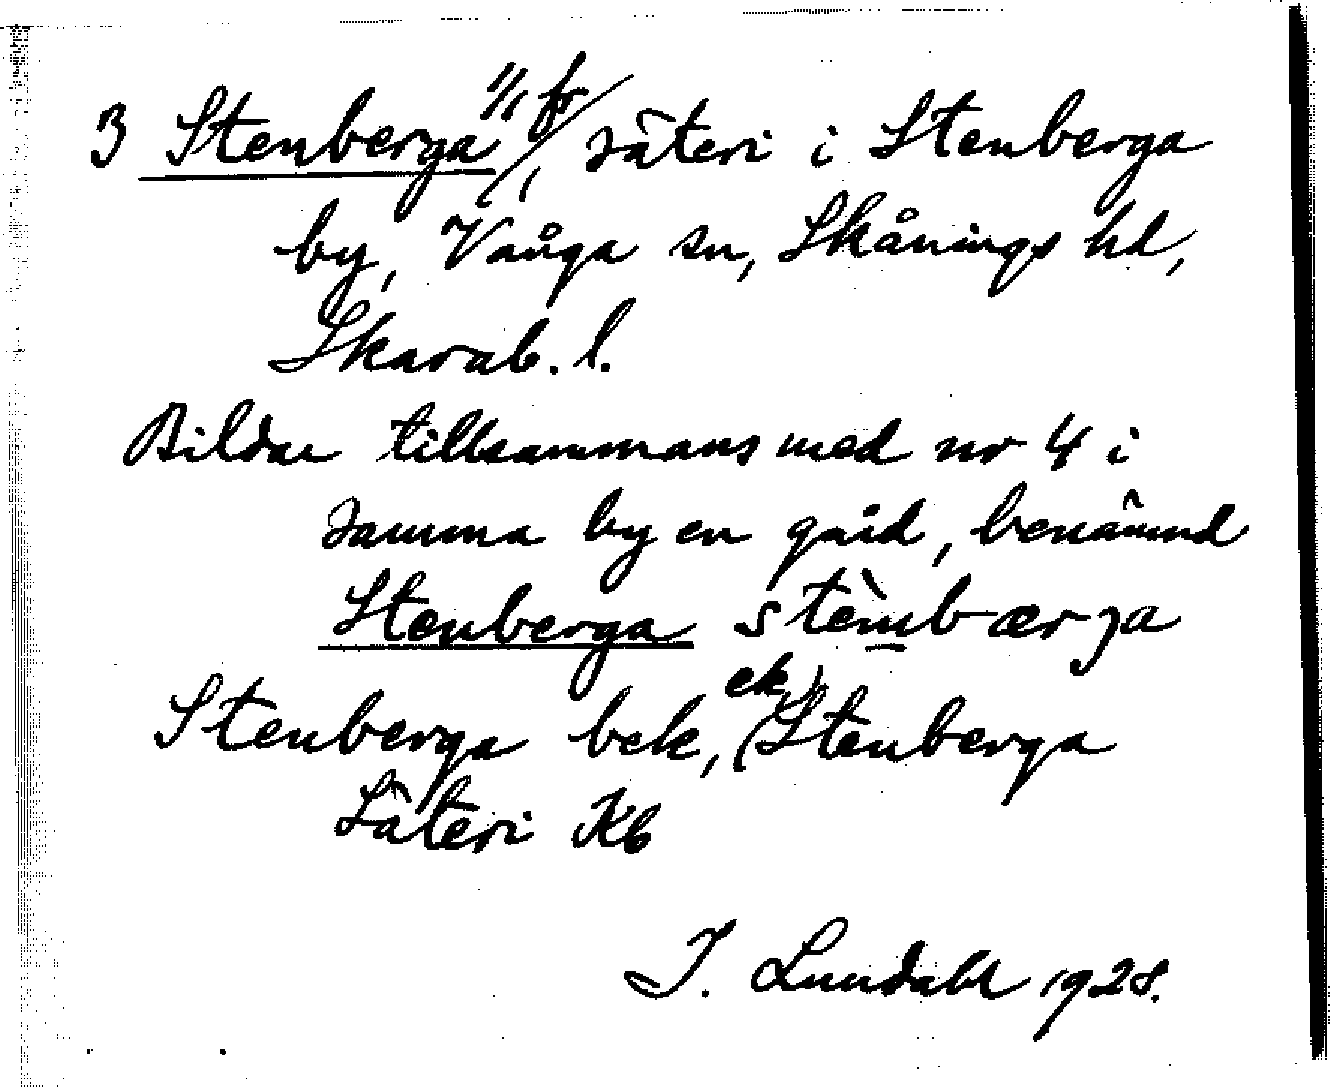 3 Stenberga 1/1 fr, säteri i Stenberga
by, Vånga sn, Skånings hd,
Skarab. l.
Bildar tillsammans med nr 4 i
samma by en gård, benämnd
Stenberga stèmb-ær-ja
Stenberga bek, (Stenberga
Säteri Kb
I. Lundahl 1928.